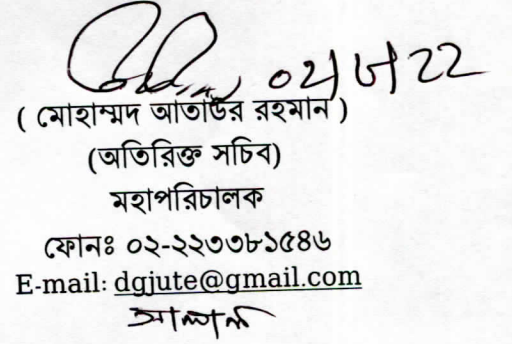 ০২/৮/২২
( মোহাম্মদ আতাউর রহমান )
(অতিরিক্ত সচিব)
মহাপরিচালক
ফোনঃ ০২-২২৩৩৮১৫৪৬
E-mail: dgjute@gmail.com